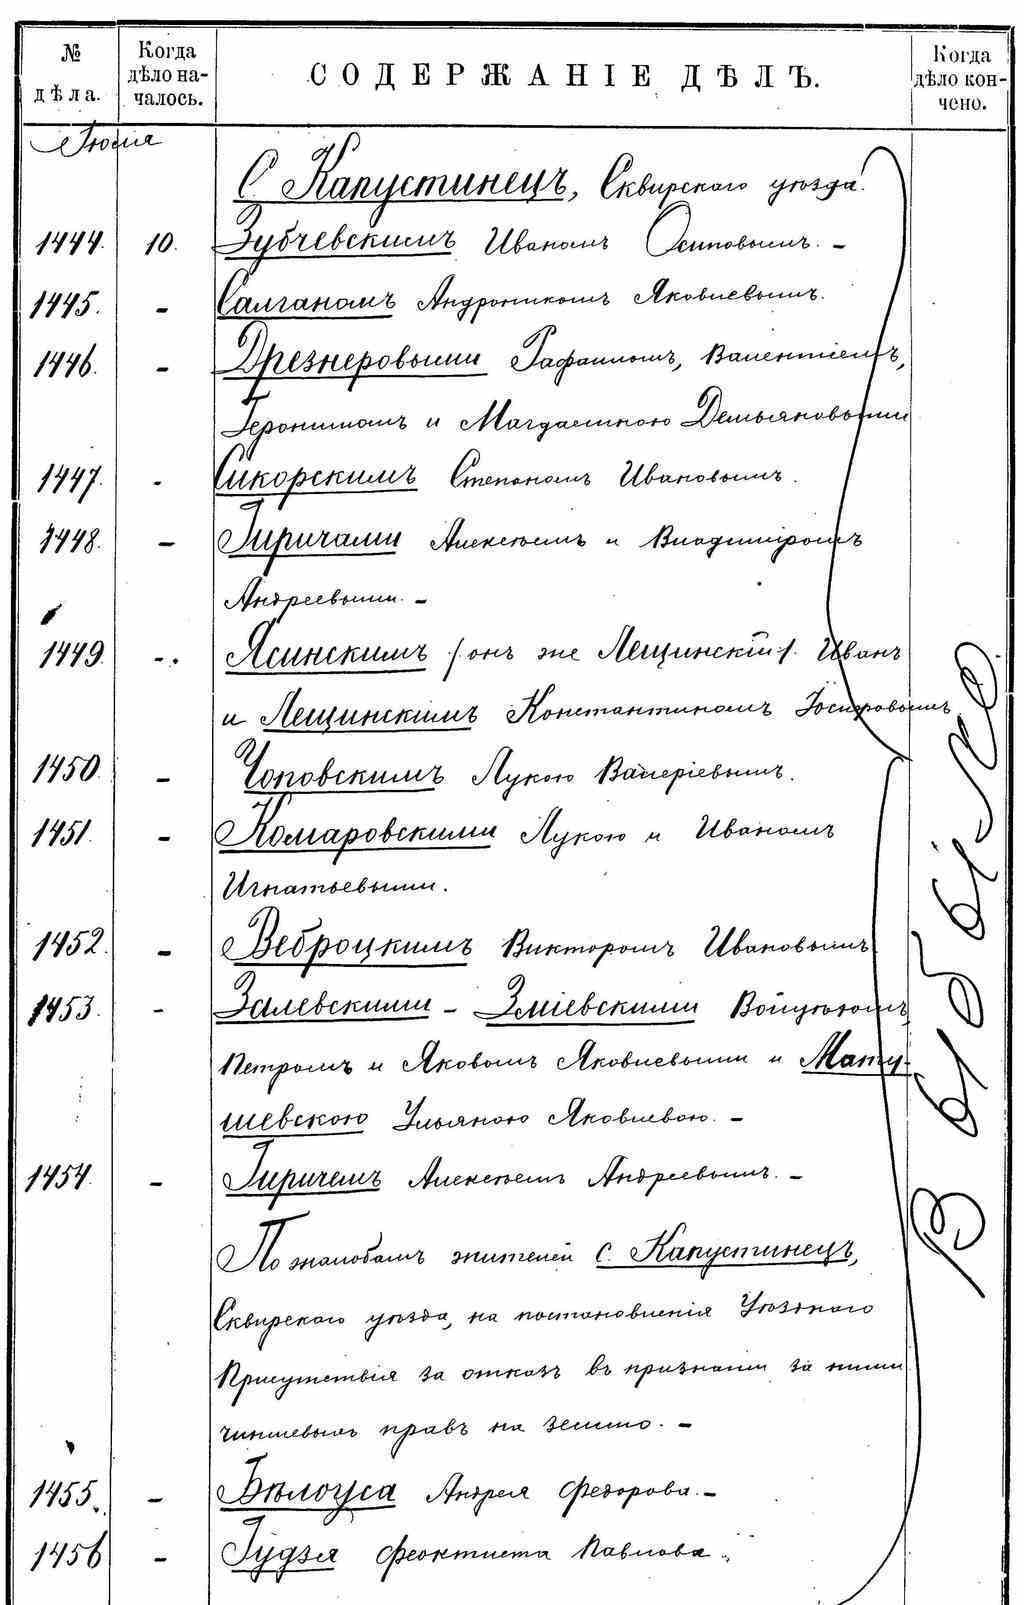 № дѣла. Когда дѣло началось. СОДЕРЖАНІЕ ДѢЛЪ. Когда дѣло кончено.
С. Капустинецъ, Сквирскаго уѣзда.
1444. 10. Зубчевскимъ Иваномъ Осиповымъ. –
1445. – Салганомъ Андроникомъ Яковлевымъ.
1446. – Дрезнеровыми Рафаиломъ, Валентіемъ,
Геронимомъ и Магдалиною Демьяновыми
1447. - Сикорскимъ Степаномъ Ивановымъ.
1448. – Гиричами Алексѣемъ и Владиміромъ
Андреевыми. –
1449. – Ясинскимъ /онъ же Лещинскій/. Иванъ
и Лещинскимъ Константиномъ Іосифовымъ
1450. – Чоповскимъ Лукою Валеріевымъ.
1451. – Комаровскими Лукою и Иваномъ
Игнатьевыми.
1452. – Веброцкимъ Викторомъ Ивановымъ
1453. – Залевскими – Зміевскими Войцѣхомъ,
Петромъ и Яковомъ Яковлевыми и Мату-
шевскою Ульяною Яковлевою. –
1454. – Гиричемъ Алексѣемъ Андреевымъ. –
По жалобамъ жителей с. Капустинецъ,
Сквирскаго уѣзда, на постановленія Уѣзднаго
Присутствія за отказъ въ признаніи за ними
чиншевыхъ правъ на землю. –
1455. – Бѣлоуса Андрея Федорова. –
1456 – Гудзя Феоктиста Павлова.